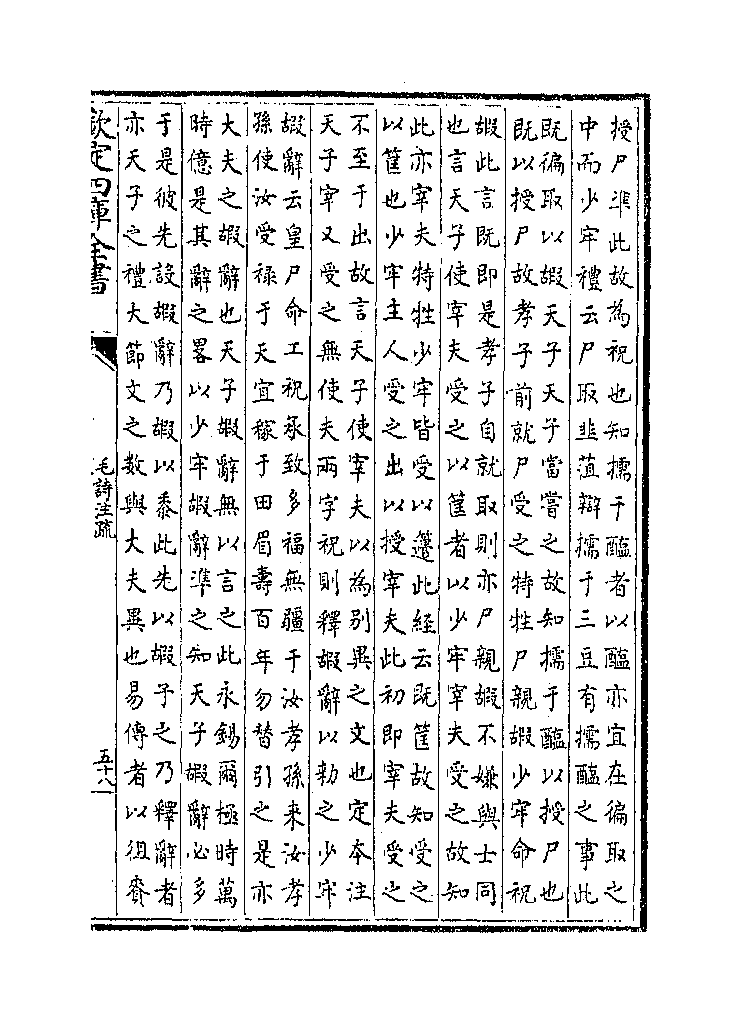 授尸準此故為祝也知擩于醢者以醢亦宜在徧取之
中而少牢禮云尸取韭菹辯擩于三豆有擩醢之事此
既徧取以嘏天子天子當嘗之故知擩于醢以授尸也
既以授尸故孝子前就尸受之特牲尸親嘏少牢命祝
嘏此言既即是孝子自就取則亦尸親嘏不嫌與士同
也言天子使宰夫受之以筐者以少牢宰夫受之故知
此亦宰夫特牲少牢皆受以籩此經云既筐故知受之
以筐也少牢主人受之出以授宰夫此初即宰夫受之
不至于出故言天子使宰夫以為别異之文也定本注
天子宰又受之無使夫兩字祝則釋嘏辭以勑之少牢
嘏辭云皇尸命工祝承致多福無疆于汝孝孫来汝孝
孫使汝受禄于天宜稼于田眉壽百年勿替引之是亦
大夫之嘏辭也天子嘏辭無以言之此永錫爾極時萬
時億是其辭之畧以少牢嘏辭準之知天子嘏辭必多
于是彼先設嘏辭乃嘏以黍此先以嘏子之乃釋辭者
亦天子之禮大節文之數與大夫異也易傳者以徂賚
欽定四庫全書
毛詩注疏
五十八